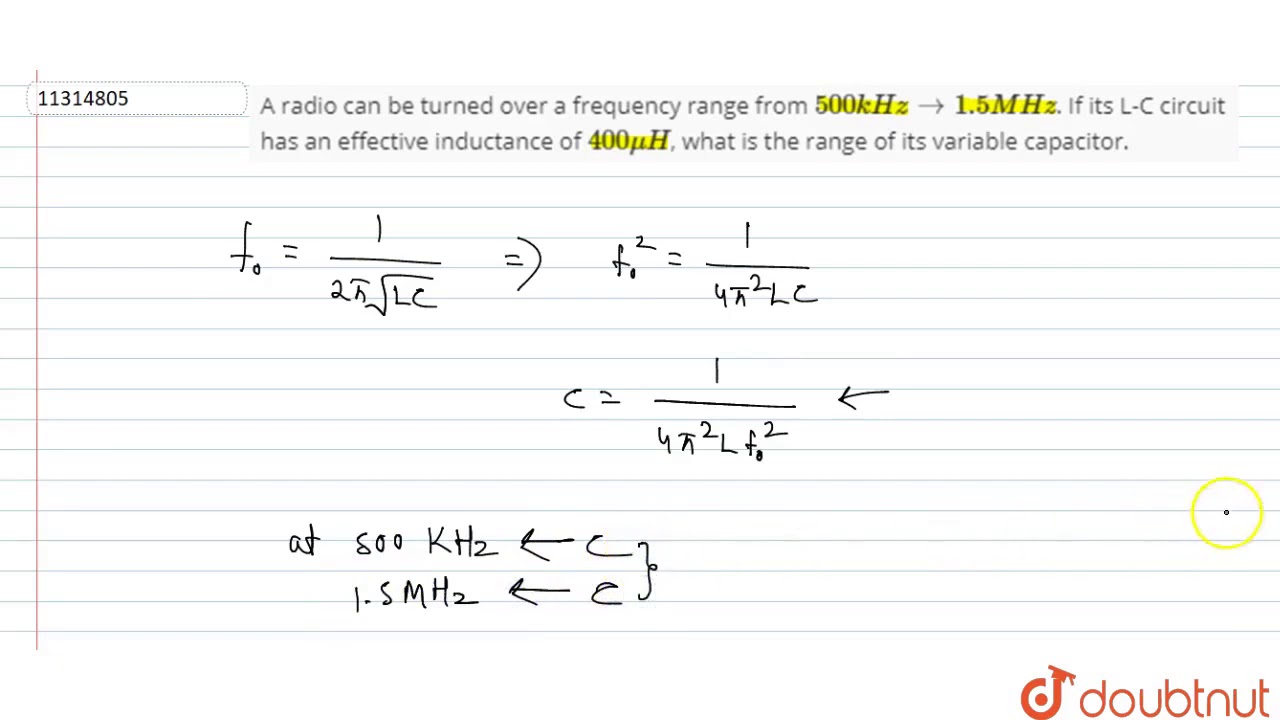 11314805
A radio can be turned over a frequency range from 500kHz → 1.5MHz. If its L-C circuit
has an effective inductance of 400μH, what is the range of its variable capacitor.
f₀ = 1/(2π√LC) ⇒ f₀² = 1/(4π²LC)
C = 1/(4π²Lf₀²) ←
at 500 KHz ← C }
1.5MHz ← C
doubtnut